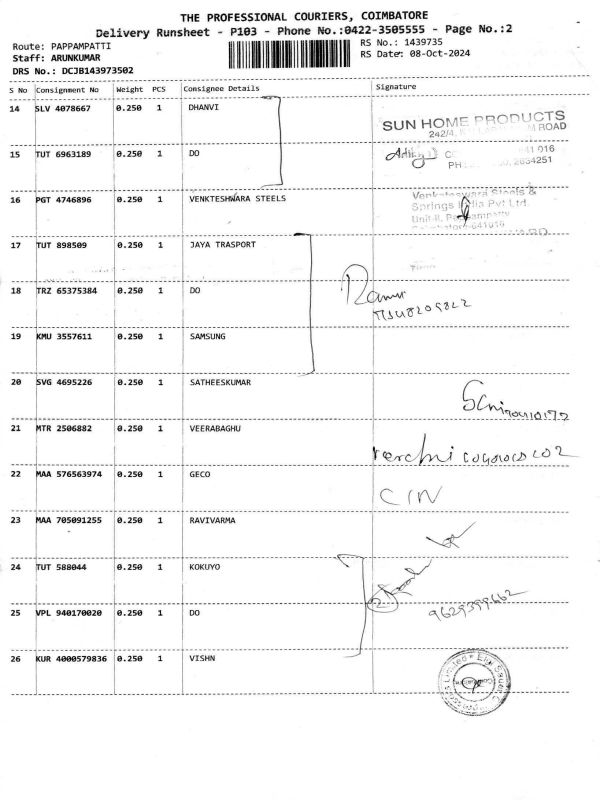 THE PROFESSIONAL COURIERS, COIMBATORE
Delivery Runsheet - P103 - Phone No.:0422-3505555 - Page No.:2
Route: PAPPAMPATTI
RS No.: 1439735
Staff: ARUNKUMAR
RS Date: 08-Oct-2024
DRS No.: DCJB143973502
S No Consignment No Weight PCS Consignee Details Signature
14 SLV 4078667 0.250 1 DHANVI
SUN HOME PRODUCTS
ROAD
15 TUT 6963189 0.250 1 DO
641 016
2634251
16 PGT 4746896 0.250 1 VENKTESHWARA STEELS
Venkateswara Steels &
Springs India Pvt Ltd.
Unit-II,
641016
17 TUT 898509 0.250 1 JAYA TRASPORT
18 TRZ 65375384 0.250 1 DO
19 KMU 3557611 0.250 1 SAMSUNG
20 SVG 4695226 0.250 1 SATHEESKUMAR
21 MTR 2506882 0.250 1 VEERABAGHU
22 MAA 576563974 0.250 1 GECO
23 MAA 705091255 0.250 1 RAVIVARMA
24 TUT 588044 0.250 1 KOKUYO
9629399662
25 VPL 940170020 0.250 1 DO
26 KUR 4000579836 0.250 1 VISHN